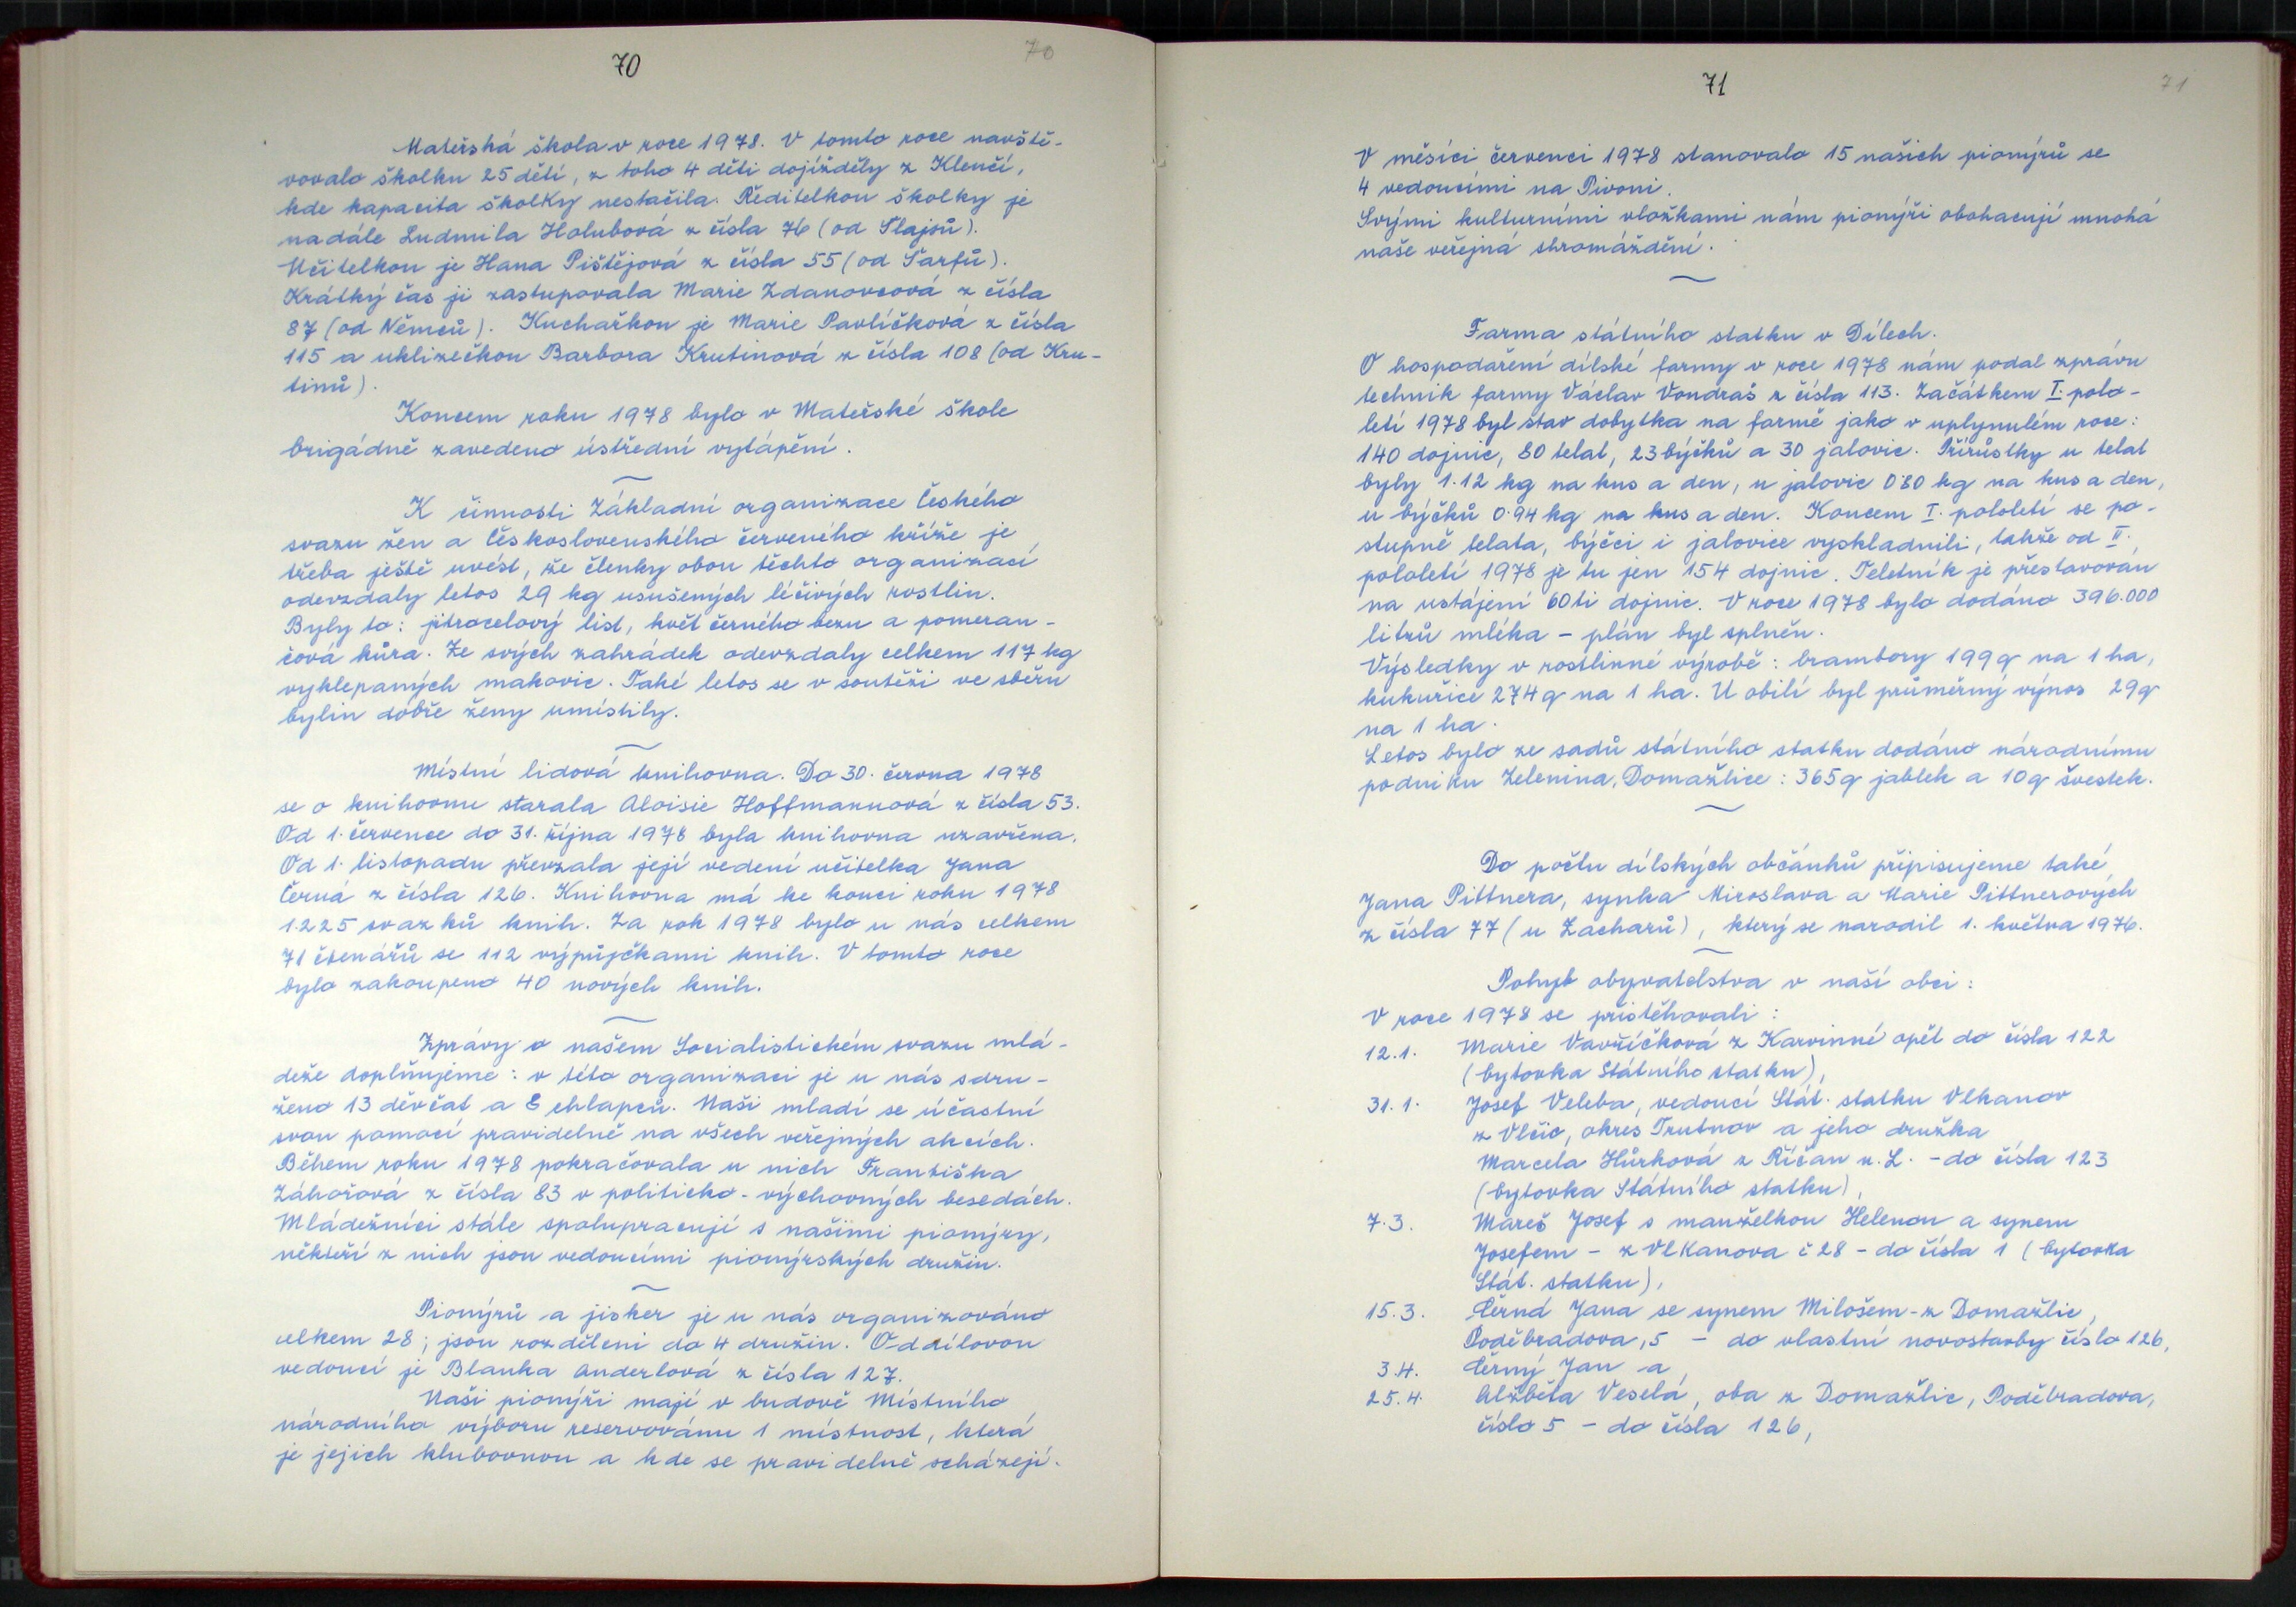 70
70
Mateřská škola v roce 1978. V tomto roce navště-
vovalo školku 25 dětí, z toho 4 děti dojížděly z Klenčí,
kde kapacita školky nestačila. Ředitelkou školky je
nadále Ludmila Holubová z čísla 76 (od Šlajsů).
Učitelkou je Hana Pištějová z čísla 55 (od Šarfů).
Krátký čas ji zastupovala Marie Zdanovcová z čísla
87 (od Němců). Kuchařkou je Marie Pavlíčková z čísla
115 a uklizečkou Barbora Krutinová z čísla 108 (od Kru-
tinů).
Koncem roku 1978 bylo v Mateřské škole
brigádně zavedeno ústřední vytápění.
K činnosti Základní organizace Českého
svazu žen a Československého červeného kříže je
třeba ještě uvést, že členky obou těchto organizací
odevzdaly letos 29 kg usušených léčivých rostlin.
Byly to: jitrocelový list, květ černého bezu a pomeran-
čová kůra. Ze svých zahrádek odevzdaly celkem 117 kg
vyklepaných makovic. Také letos se v soutěži ve sběru
bylin dobře ženy umístily.
Místní lidová knihovna. Do 30. června 1978
se o knihovnu starala Aloisie Hoffmannová z čísla 53.
Od 1. července do 31. října 1978 byla knihovna uzavřena.
Od 1. listopadu převzala její vedení učitelka Jana
Černá z čísla 126. Knihovna má ke konci roku 1978
1.225 svazků knih. Za rok 1978 bylo u nás celkem
71 čtenářů se 112 výpůjčkami knih. V tomto roce
bylo zakoupeno 40 nových knih.
Zprávy o našem Socialistickém svazu mlá-
deže doplňujeme: v této organizaci je u nás sdru-
ženo 13 děvčat a 8 chlapců. Naši mladí se účastní
svou pomocí pravidelně na všech veřejných akcích.
Během roku 1978 pokračovala u nich Františka
Záhořová z čísla 83 v politicko-výchovných besedách.
Mládežníci stále spolupracují s našimi pionýry,
někteří z nich jsou vedoucími pionýrských družin.
Pionýrů a jisker je u nás organizováno
celkem 28; jsou rozděleni do 4 družin. Oddílovou
vedoucí je Blanka Anderlová z čísla 127.
Naši pionýři mají v budově Místního
národního výboru reservovánu 1 místnost, která
je jejich klubovnou a kde se pravidelně scházejí.
71
71
V měsíci červenci 1978 stanovalo 15 našich pionýrů se
4 vedoucími na Pivoni.
Svými kulturními vložkami nám pionýři obohacují mnohá
naše veřejná shromáždění.
Farma státního statku v Dílech.
O hospodaření dílské farmy v roce 1978 nám podal zprávu
technik farmy Václav Vondraš z čísla 113. Začátkem I. polo-
letí 1978 byl stav dobytka na farmě jako v uplynulém roce:
140 dojnic, 80 telat, 23 býčků a 30 jalovic. Přírůstky u telat
byly 1.12 kg na kus a den, u jalovic 0.80 kg na kus a den,
u býčků 0.94 kg na kus a den. Koncem I. pololetí se po-
stupně telata, býčci i jalovice vyskladnili, takže od II.
pololetí 1978 je tu jen 154 dojnic. Teletník je přestavován
na ustájení 60ti dojnic. V roce 1978 bylo dodáno 396.000
litrů mléka - plán byl splněn.
Výsledky v rostlinné výrobě: brambory 199 q na 1 ha,
kukuřice 274 q na 1 ha. U obilí byl průměrný výnos 29 q
na 1 ha.
Letos bylo ze sadů státního statku dodáno národnímu
podniku Zelenina, Domažlice: 365 q jablek a 10 q švestek.
Do počtu dílských občánků připisujeme také
Jana Pittnera, synka Miroslava a Marie Pittnerových
z čísla 77 (u Zacharů), který se narodil 1. května 1976.
Pohyb obyvatelstva v naší obci:
V roce 1978 se přistěhovali:
12.1. Marie Vavřičková z Karvinné opět do čísla 122
(bytovka Státního statku),
31.1. Josef Veleba, vedoucí Stát. statku Vlkanov
z Vlčic, okres Trutnov a jeho družka
Marcela Hůrková z Říčan u.L. - do čísla 123
(bytovka Státního statku),
7.3. Mareš Josef s manželkou Helenou a synem
Josefem - z Vlkanova č 28 - do čísla 1 (bytovka
Stát. statku),
15.3. Černá Jana se synem Milošem - z Domažlic,
Poděbradova, 5 - do vlastní novostavby číslo 126,
3.4. Černý Jan a
25.4. Alžběta Veselá, oba z Domažlic, Poděbradova,
číslo 5 - do čísla 126,